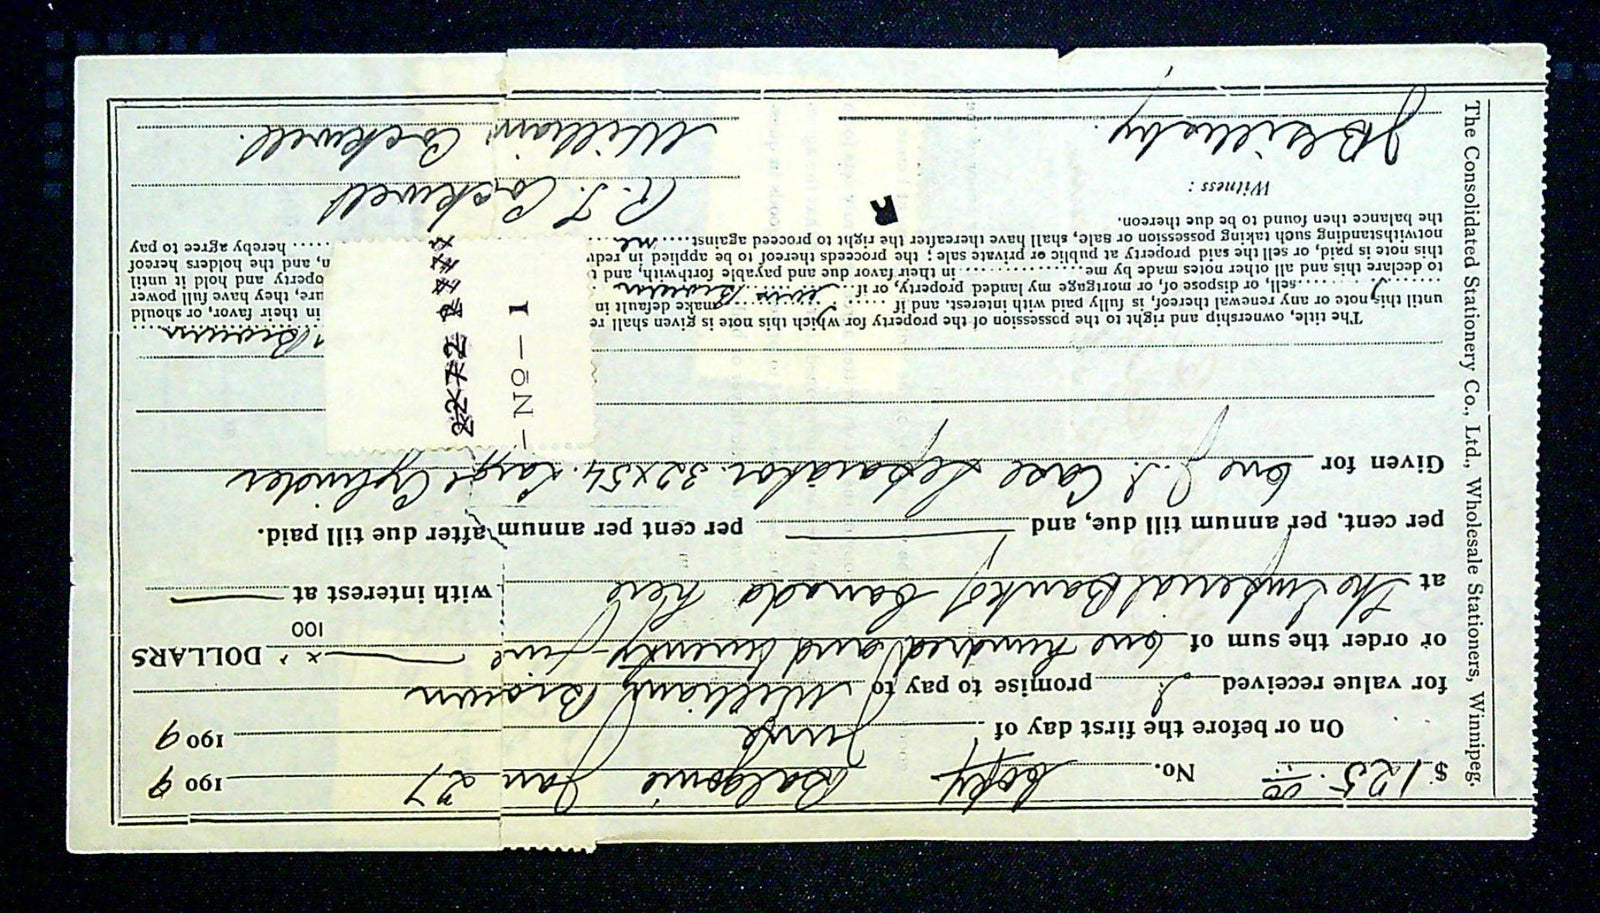 $ 125.00 No. Copy Balgonie Jan 27 1909
On or before the first day of June 1909
for value received I promise to pay to William Brown
or order the sum of One hundred and twenty five x/100 DOLLARS
at The Imperial Bank of Canada here with interest at
per cent, per annum till due, and per cent per annum after due till paid.
Given for One J. I. Case Separator 32 x 54. Large Cylinder
The title, ownership and right to the possession of the property for which this note is given shall re Brown
until this note or any renewal thereof, is fully paid with interest, and if I make default in in their favor, or should
I sell, or dispose of, or mortgage my landed property, or if Brown ure, they have full power
to declare this and all other notes made by me in their favor due and payable forthwith, and operty and hold it until
this note is paid, or sell the said property at public or private sale; the proceeds thereof to be applied in redu n, and the holders hereof
notwithstanding such taking possession or sale, shall have thereafter the right to proceed against me hereby agree to pay
the balance then found to be due thereon.
Witness:
R. J. Cockwell
William Cockwell.
The Consolidated Stationery Co., Ltd., Wholesale Stationers, Winnipeg.
2272
-NO-1
R